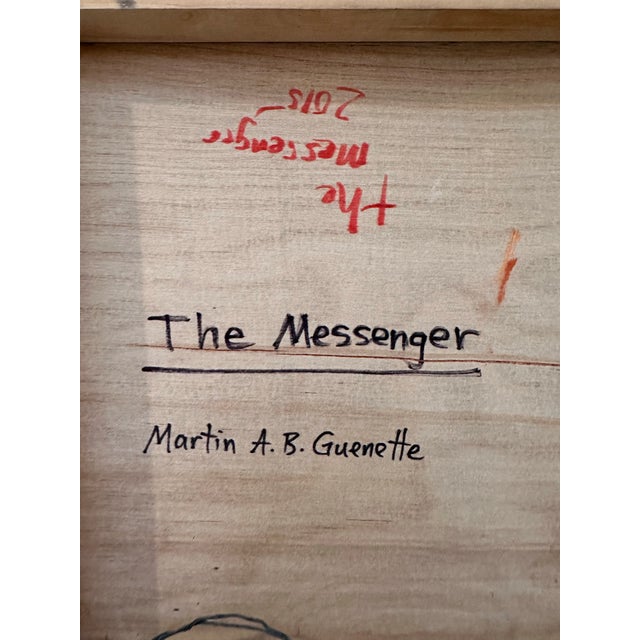 the
Messenger
2015
The Messenger
Martin A.B. Guenette